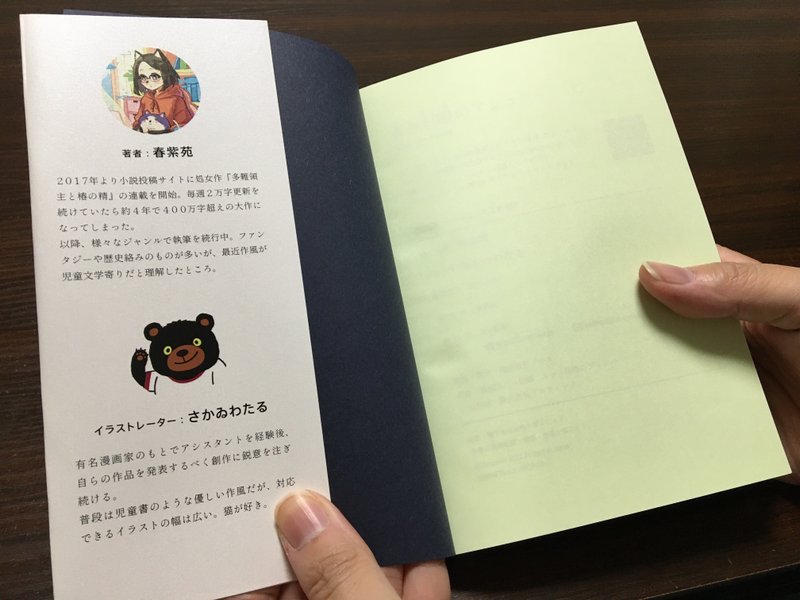 著者：春紫苑
2017年より小説投稿サイトに処女作『多難領
主と椿の精』の連載を開始。毎週2万字更新を
続けていたら約4年で400万字超えの大作に
なってしまった。
以降、様々なジャンルで執筆を続行中。ファン
タジーや歴史絡みのものが多いが、最近作風が
児童文学寄りだと理解したところ。
イラストレーター：さかゐわたる
有名漫画家のもとでアシスタントを経験後、
自らの作品を発表するべく創作に鋭意を注ぎ
続ける。
普段は児童書のような優しい作風だが、対応
できるイラストの幅は広い。猫が好き。